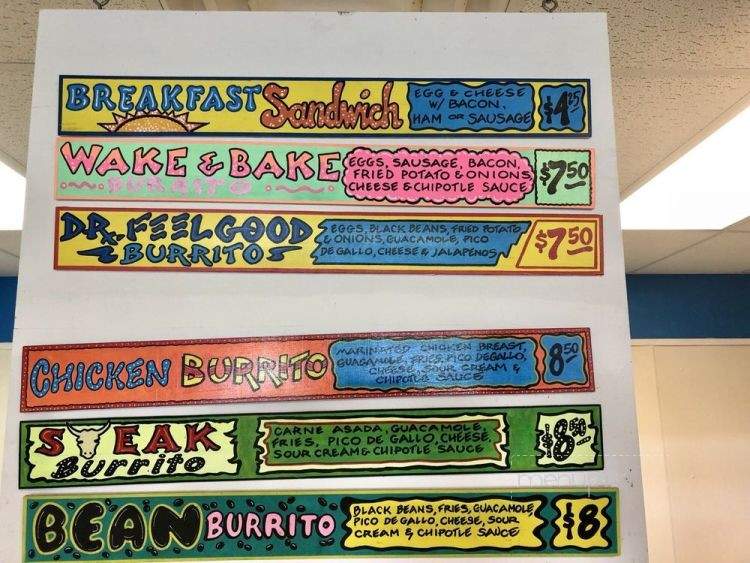 BREAKFAST Sandwich
EGG & CHEESE
W/ BACON,
HAM OR SAUSAGE
$4.25
WAKE & BAKE
BURRITO
EGGS, SAUSAGE, BACON,
FRIED POTATO & ONIONS
CHEESE & CHIPOTLE SAUCE
$7.50
DR. FEELGOOD
BURRITO
EGGS, BLACK BEANS, FRIED POTATO
& ONIONS, GUACAMOLE, PICO
DE GALLO, CHEESE & JALAPENOS
$7.50
CHICKEN BURRITO
MARINATED CHICKEN BREAST,
GUACAMOLE, FRIES, PICO DEGALLO,
CHEESE, SOUR CREAM &
CHIPOTLE SAUCE
8.50
STEAK
Burrito
CARNE ASADA, GUACAMOLE,
FRIES, PICO DE GALLO, CHEESE,
SOUR CREAM & CHIPOTLE SAUCE
$8.50
BEAN BURRITO
BLACK BEANS, FRIES, GUACAMOLE
PICO DE GALLO, CHEESE, SOUR
CREAM & CHIPOTLE SAUCE
$8